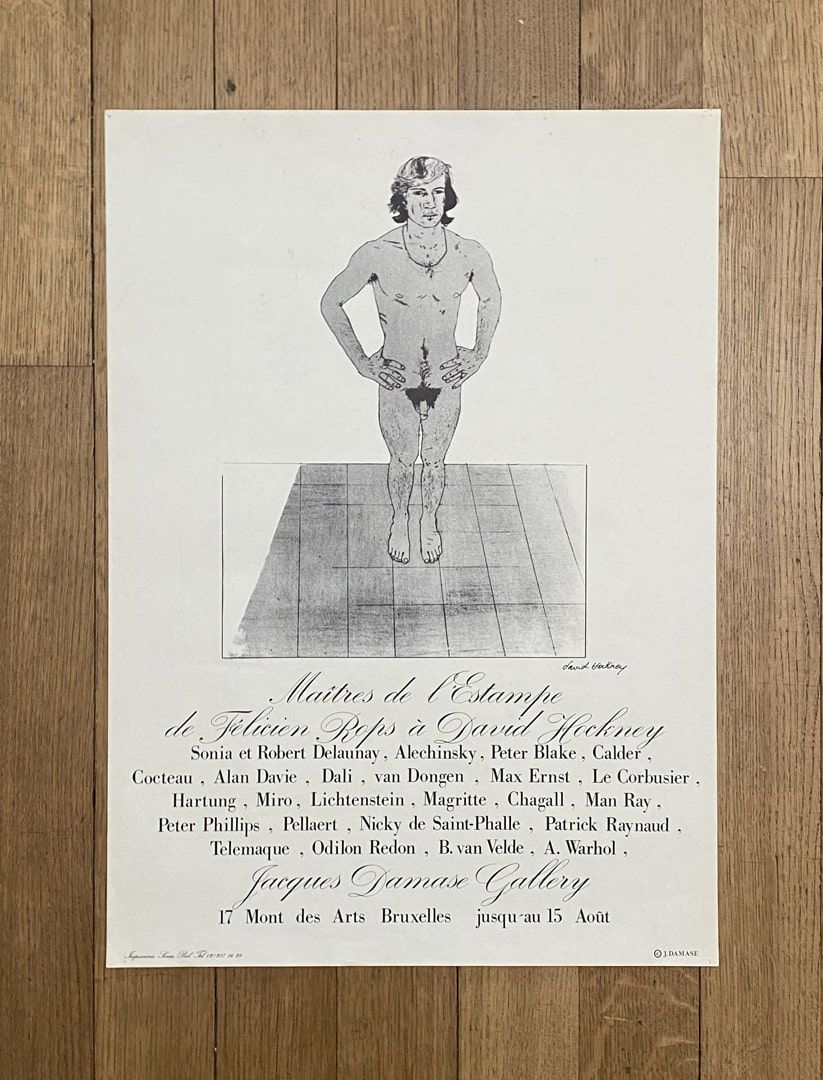 David Hockney
Maîtres de l'Estampe
de Félicien Rops à David Hockney
Sonia et Robert Delaunay , Alechinsky , Peter Blake , Calder ,
Cocteau , Alan Davie , Dali , van Dongen , Max Ernst , Le Corbusier ,
Hartung , Miro , Lichtenstein , Magritte , Chagall , Man Ray ,
Peter Phillips , Pellaert , Nicky de Saint-Phalle , Patrick Raynaud ,
Telemaque , Odilon Redon , B. van Velde , A. Warhol ,
Jacques Damase Gallery
17 Mont des Arts Bruxelles jusqu'au 15 Août
Imprimerie Bel. Tel.
© J.DAMASE